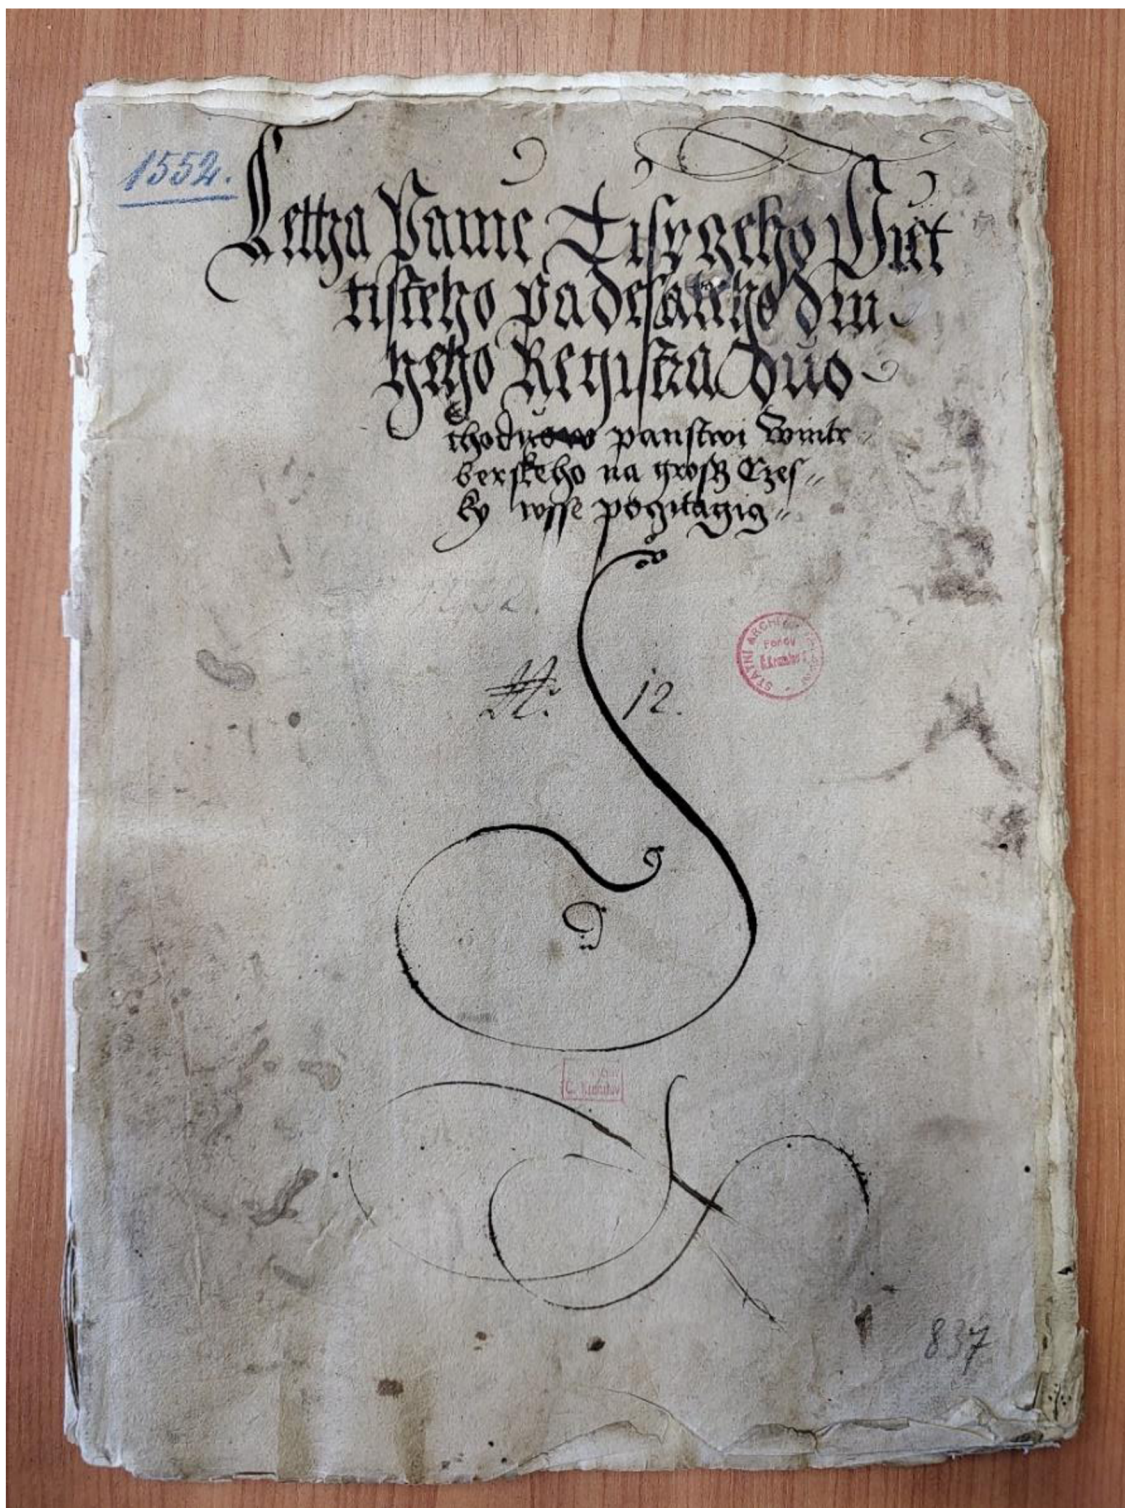 1552.
Lettha Panie Tisyczeho Piet
tisteho padesateho dru
heho Registra duo
choduow panstwi Wintr
berskeho na grossh Czes
ky wsse pocitagig
12.
STATNI ARCHIV
Fondu
Č. Krumlov
837